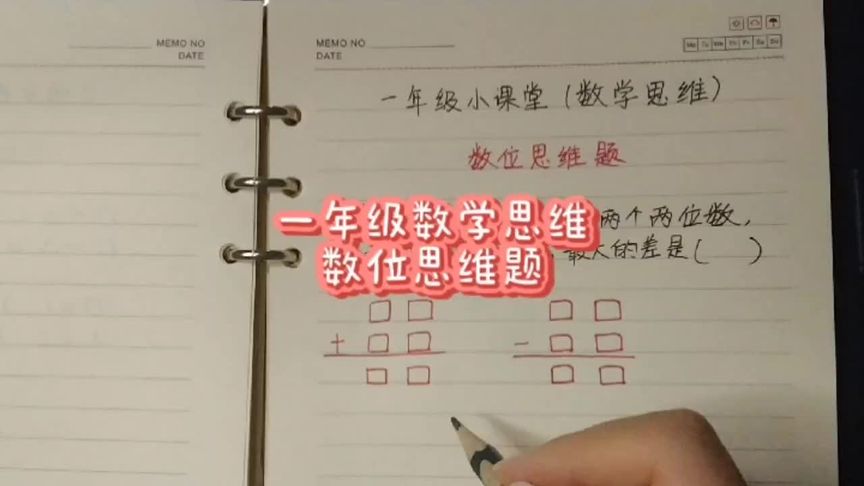 MEMO NO
DATE
MEMO NO
DATE
Mo Tu We Th Fr Sa Su
一年级小课堂(数学思维)
数位思维题
两个两位数,
最大的差是( )
一年级数学思维
数位思维题
+
-